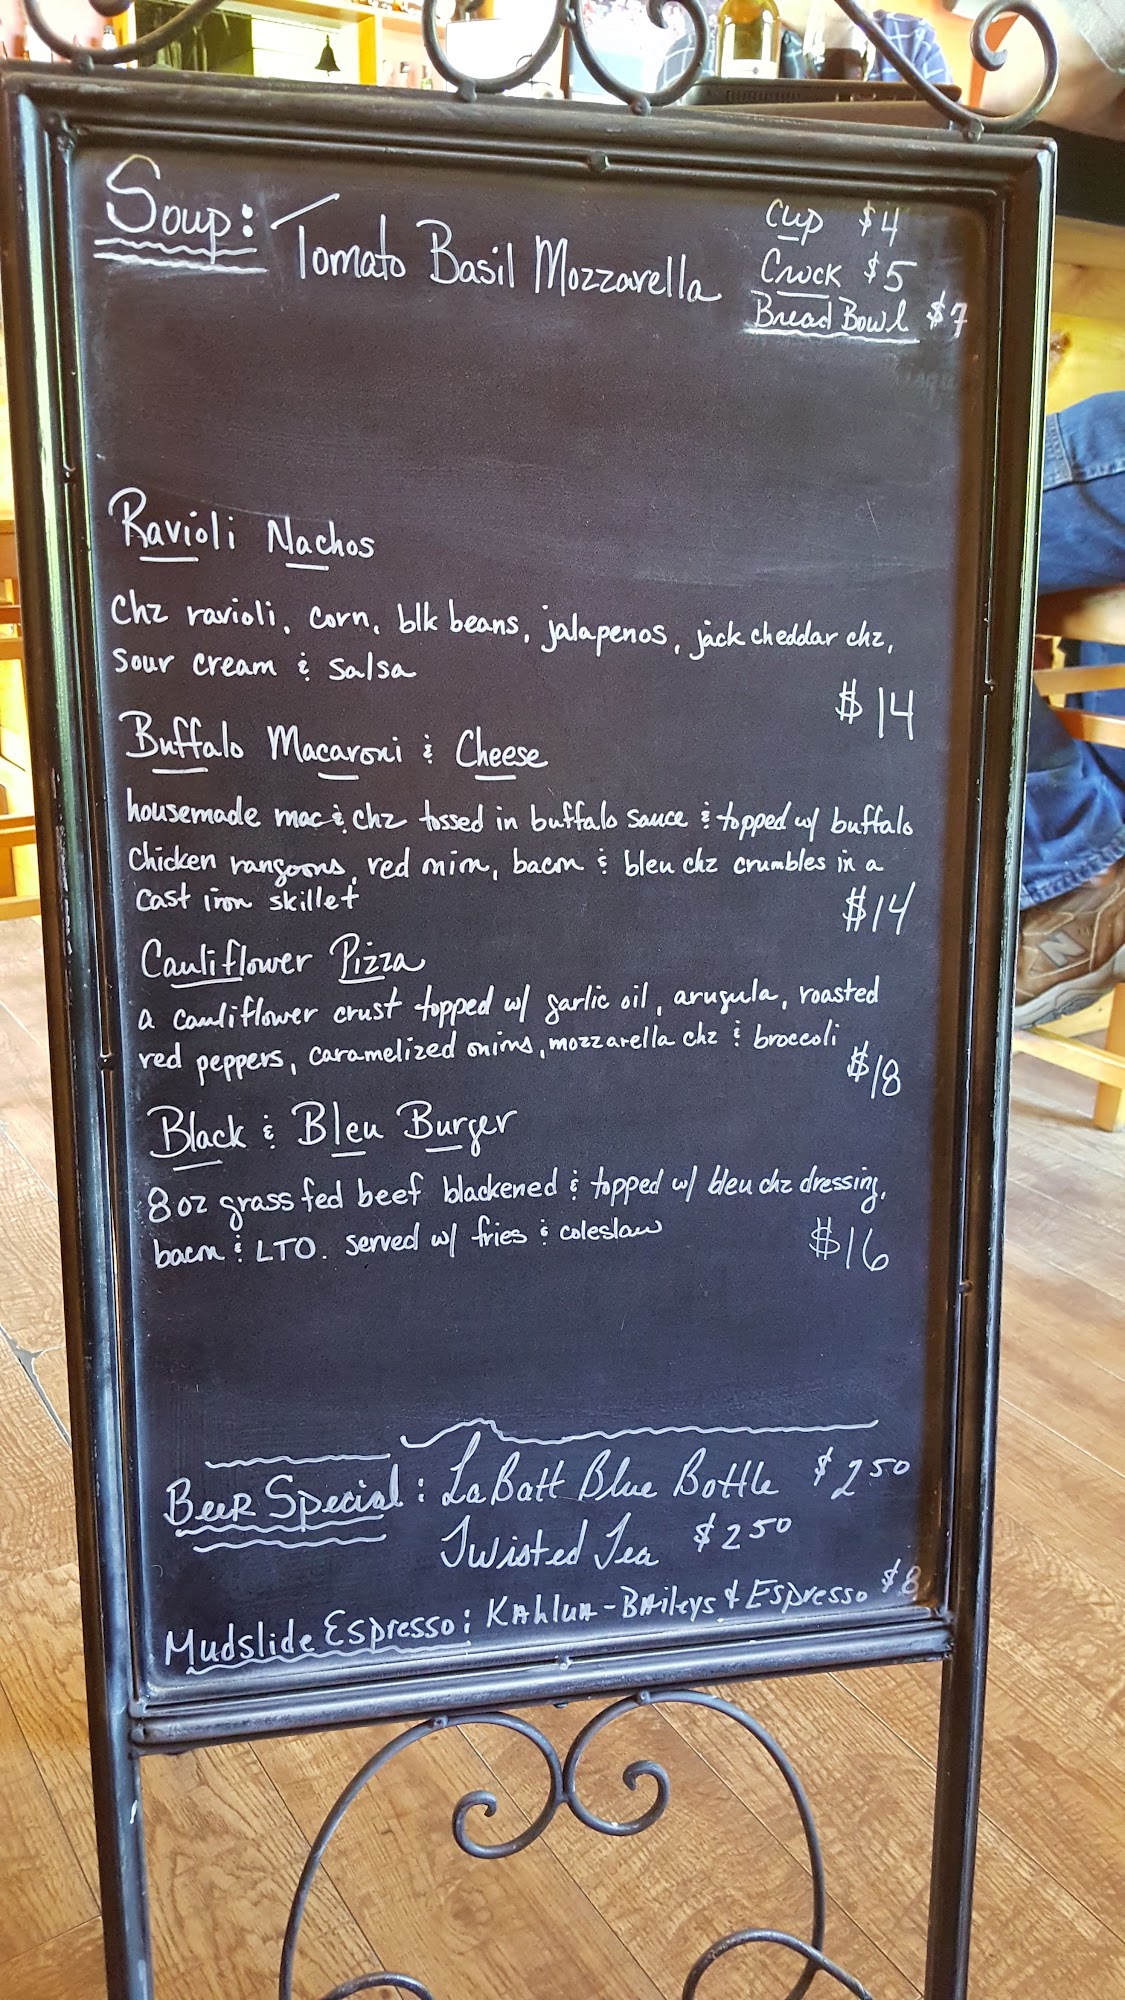 Soup: Tomato Basil Mozzarella
Cup $4
Crock $5
Bread Bowl $7
Ravioli Nachos
chz ravioli, corn, blk beans, jalapenos, jack cheddar chz,
sour cream & salsa
$14
Buffalo Macaroni & Cheese
housemade mac & chz tossed in buffalo sauce & topped w/ buffalo
chicken rangoons, red onion, bacon & bleu chz crumbles in a
cast iron skillet
$14
Cauliflower Pizza
a cauliflower crust topped w/ garlic oil, arugula, roasted
red peppers, caramelized onions, mozzarella chz & broccoli
$18
Black & Bleu Burger
8oz grass fed beef blackened & topped w/ bleu chz dressing,
bacon & LTO. served w/ fries & coleslaw
$16
Beer Special: LaBatt Blue Bottle $2 50
Twisted Tea $2 50
Mudslide Espresso: Kahlua-Baileys & Espresso $8